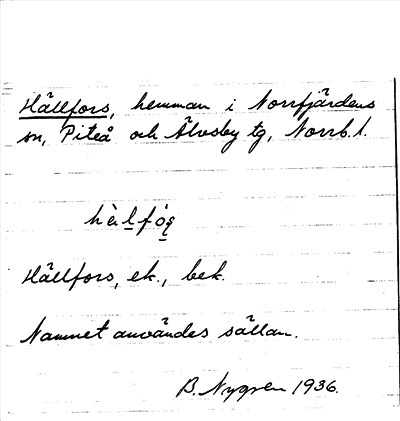 Hällfors, hemman i Norrfjärdens
sn, Piteå och Älvsby tg, Norrb. l.
Hällfors, ek., bek.
Namnet användes sällan.
B. Nygren 1936.